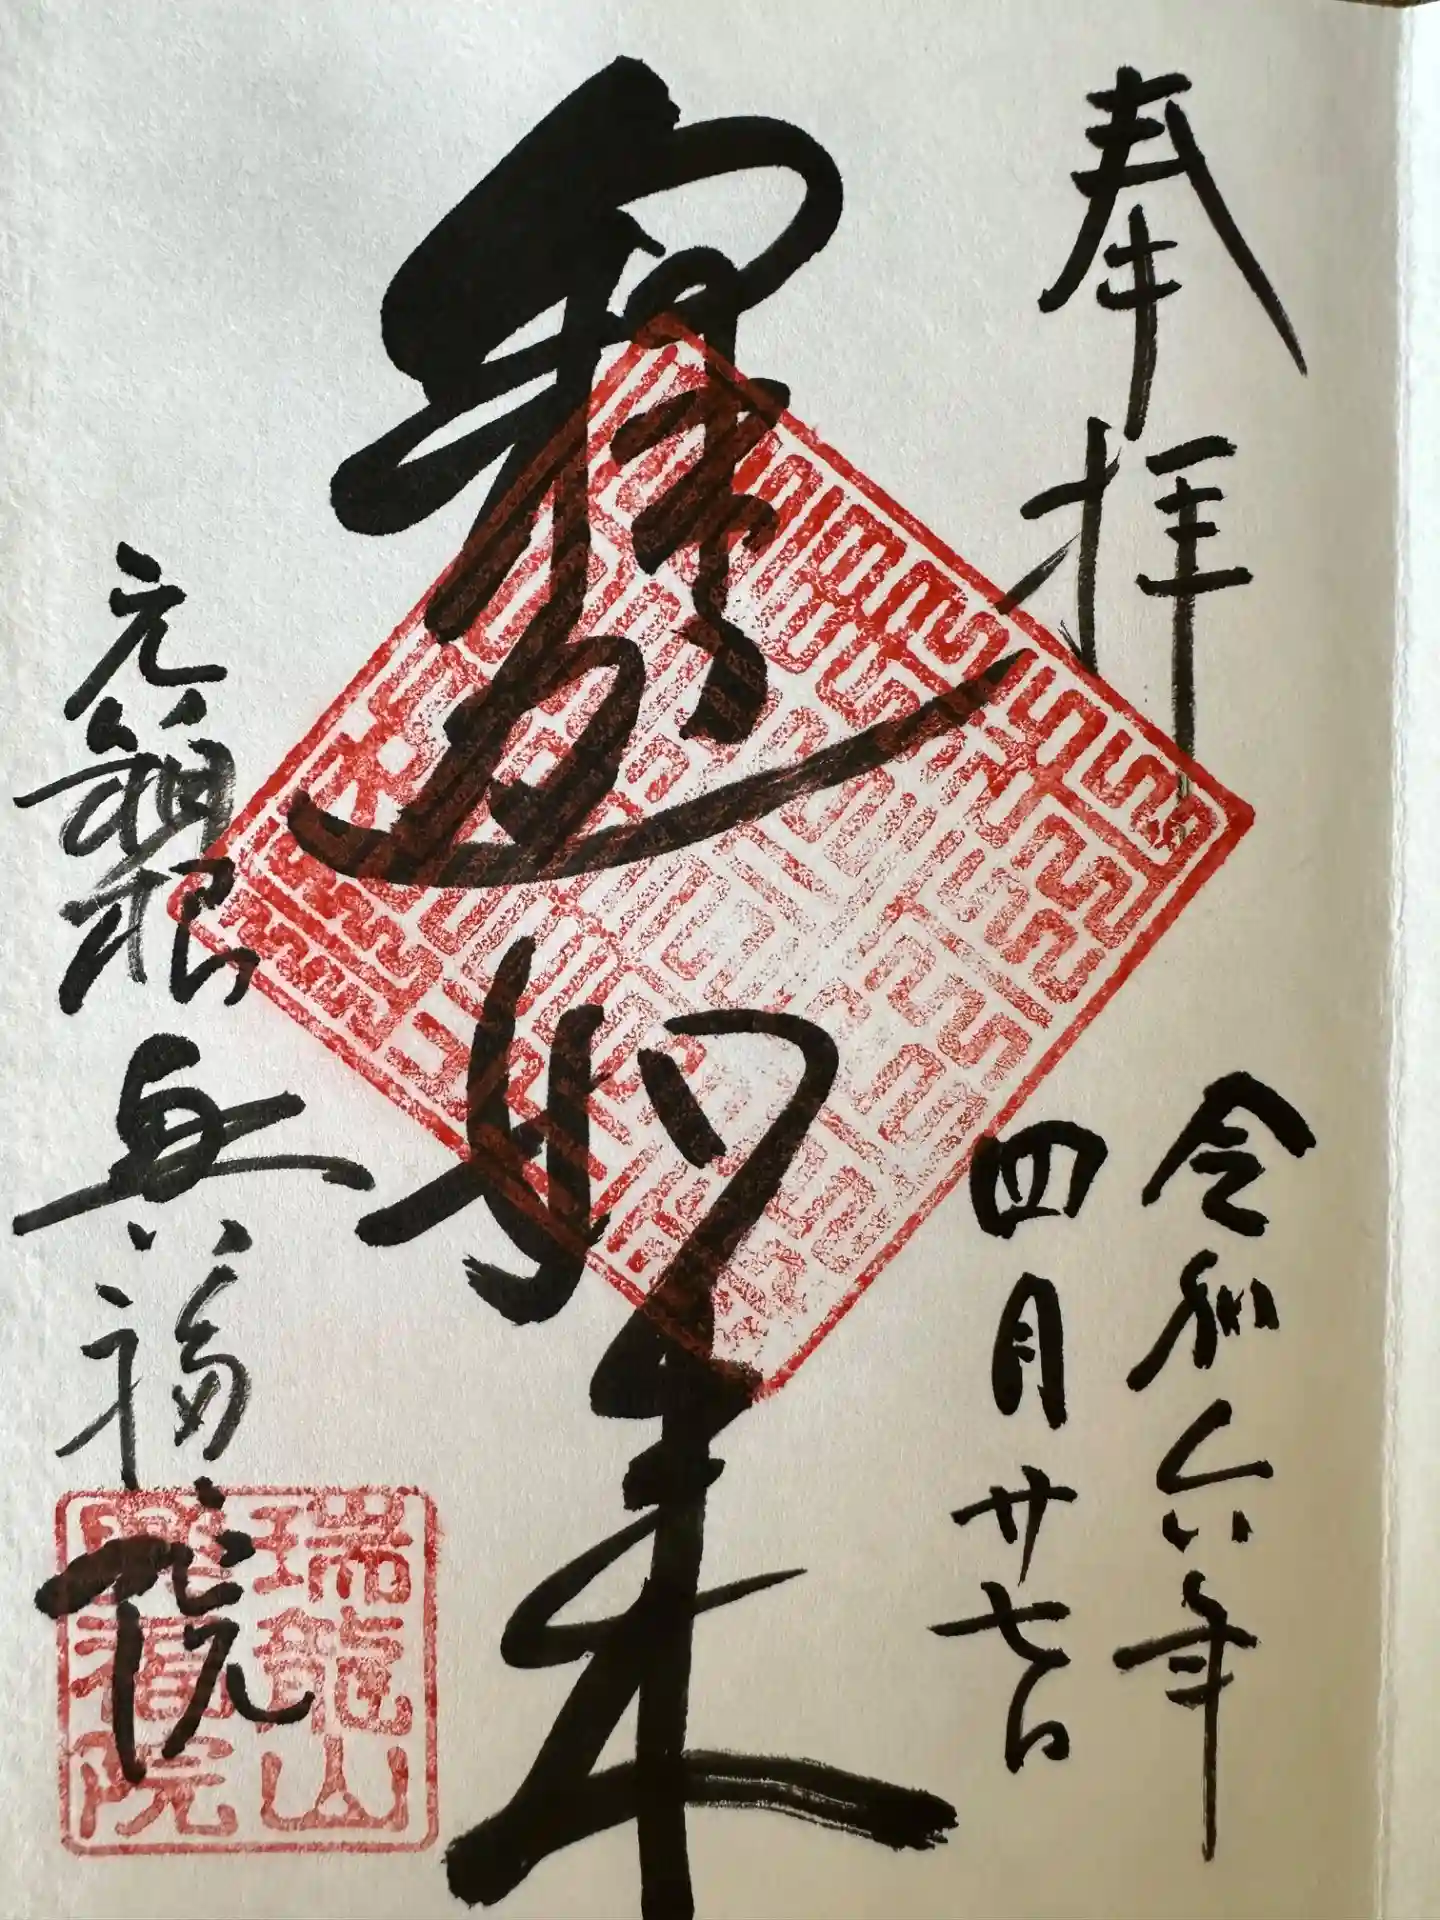 奉拝
令和六年
四月廿七日
釋迦如来
元箱根 興福院
瑞龍山
興福院